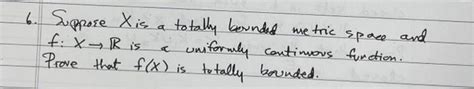 6. Suppose X is a totally bounded metric space and
f: X → ℝ is a uniformly continuous function.
Prove that f(X) is totally bounded.